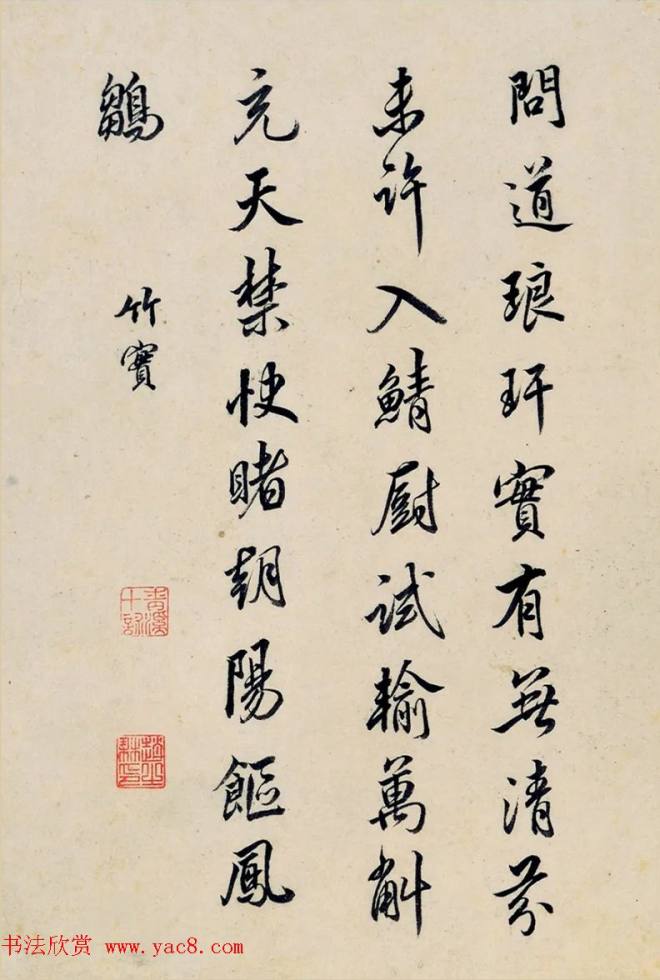 問道琅玕實有無清芬
未許入鯖厨試輸萬斛
充天禁快睹朝陽飫鳳
鶵
竹實
书法欣赏 www.yac8.com